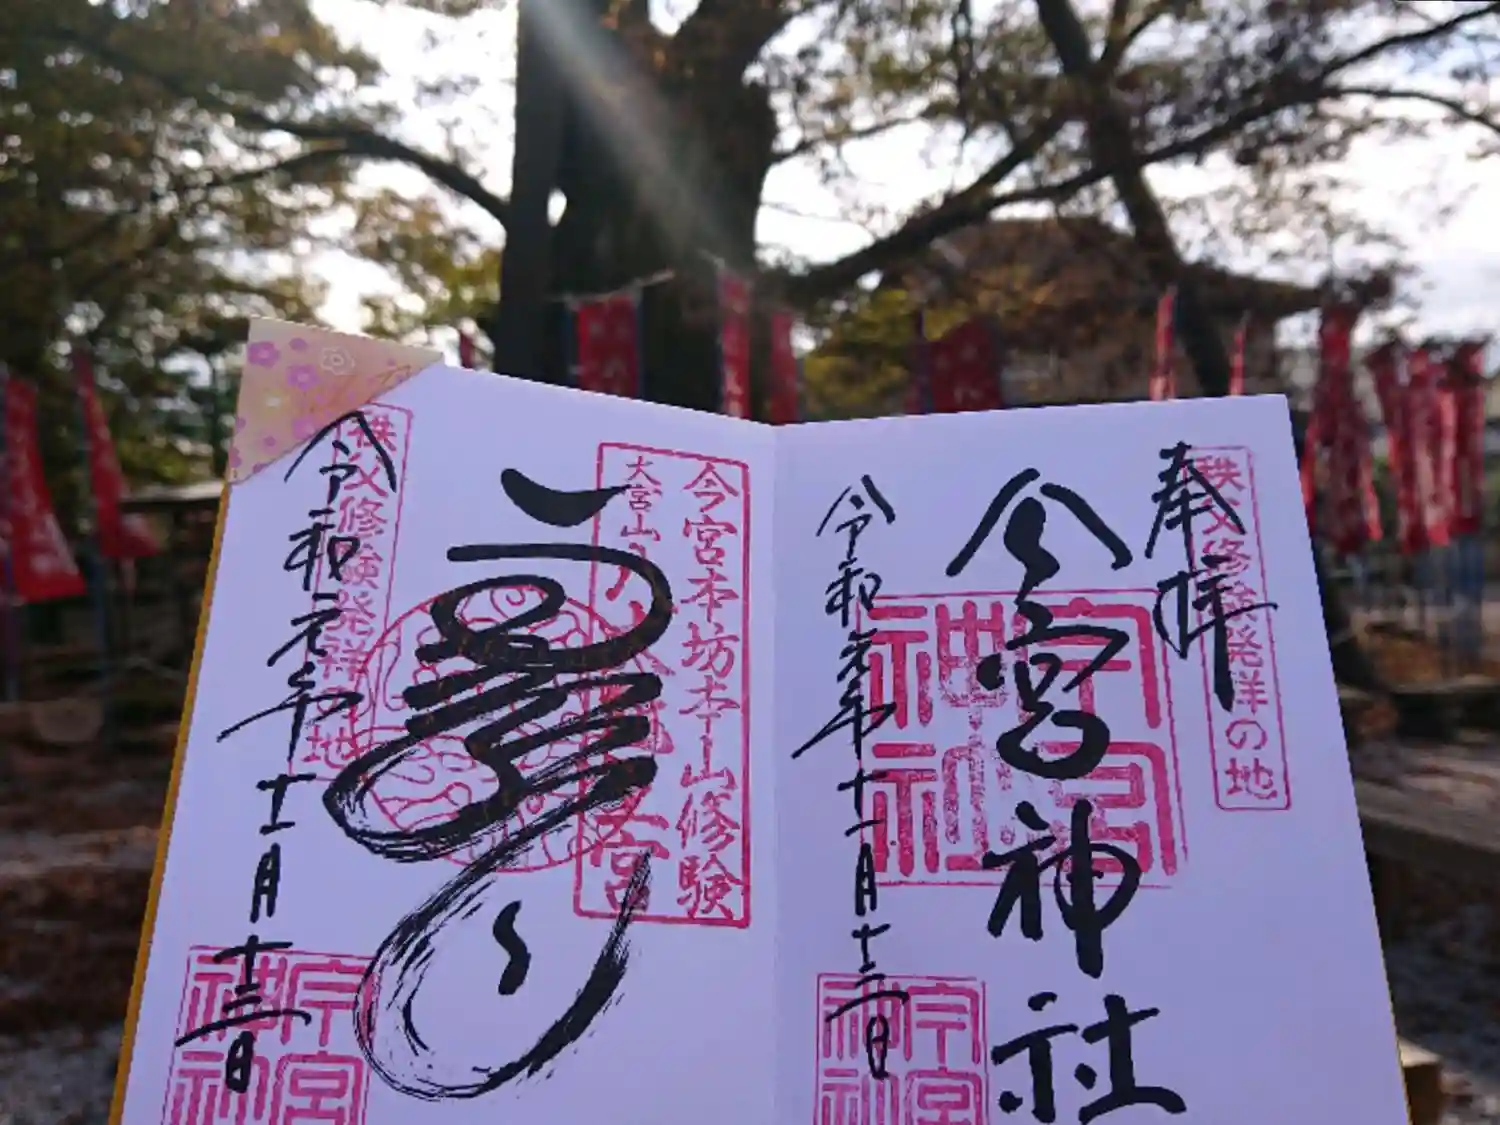 奉拝
秩父修験発祥の地
今宮神社
今宮神社
令和元年十一月十三日
今宮神社
今宮本坊本山修験
大宮山
秩父修験発祥の地
令和元年十一月十三日
今宮神社